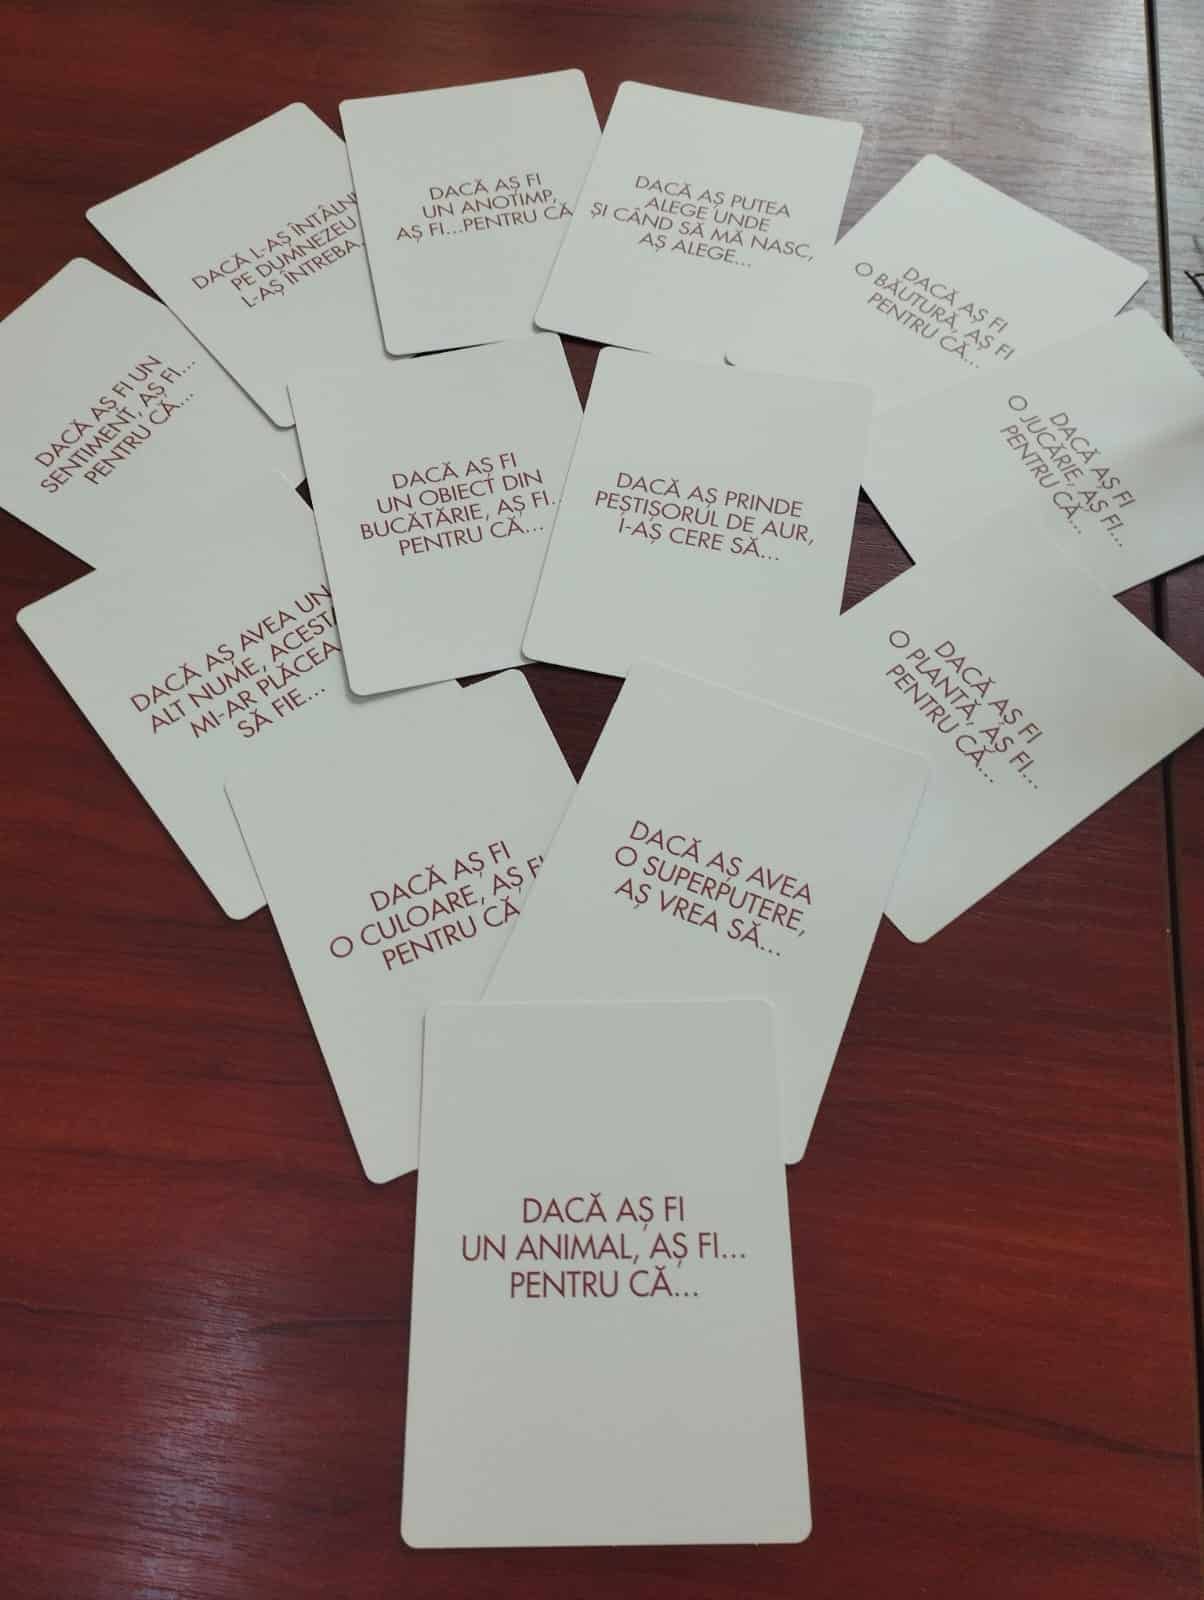 DACĂ L-AȘ ÎNTÂLNI
PE DUMNEZEU
L-AȘ ÎNTREBA...
DACĂ AȘ FI
UN ANOTIMP,
AȘ FI...PENTRU CĂ
DACĂ AȘ PUTEA
ALEGE UNDE
ȘI CÂND SĂ MĂ NASC,
AȘ ALEGE...
DACĂ AȘ FI
O BĂUTURĂ, AȘ FI
PENTRU CĂ...
DACĂ AȘ FI UN
SENTIMENT, AȘ FI...
PENTRU CĂ...
DACĂ AȘ FI
UN OBIECT DIN
BUCĂTĂRIE, AȘ FI..
PENTRU CĂ...
DACĂ AȘ PRINDE
PEȘTIȘORUL DE AUR,
I-AȘ CERE SĂ...
DACĂ AȘ FI
O JUCĂRIE, AȘ FI...
PENTRU CĂ...
DACĂ AȘ AVEA UN
ALT NUME, ACESTA
MI-AR PLĂCEA
SĂ FIE...
DACĂ AȘ FI
O PLANTĂ, AȘ FI...
PENTRU CĂ...
DACĂ AȘ FI
O CULOARE, AȘ FI
PENTRU CĂ
DACĂ AȘ AVEA
O SUPERPUTERE,
AȘ VREA SĂ...
DACĂ AȘ FI
UN ANIMAL, AȘ FI...
PENTRU CĂ...